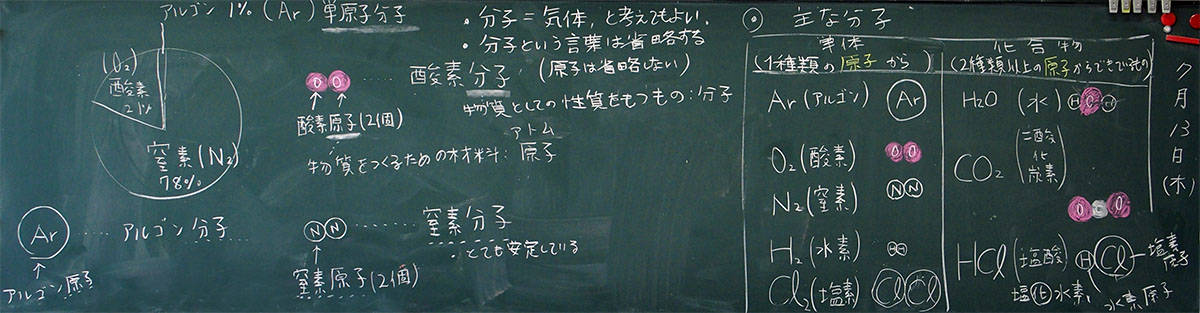 アルゴン 1% (Ar) 単原子分子
(O2)
酸素
21%
窒素(N2)
78%
Ar ‥‥ アルゴン分子
アルゴン原子
O O ‥‥ 酸素分子
酸素原子(2個)
物質をつくるための材料:原子
アトム
N N ‥‥ 窒素分子
・とても安定している
窒素原子(2個)
・分子=気体,と考えてもよい.
・分子という言葉は省略する
(原子は省略しない)
物質としての性質をもつもの:分子
◎ 主な分子
単体
(1種類の原子から)
Ar (アルゴン) Ar
O2 (酸素) O O
N2 (窒素) N N
H2 (水素) H H
Cl2 (塩素) Cl Cl
化合物
(2種類以上の原子からできているもの)
H2O (水) H O H
CO2 (二酸化炭素)
O C O
HCl (塩酸) H Cl 塩素原子
塩化水素
水素原子
7月13日(木)